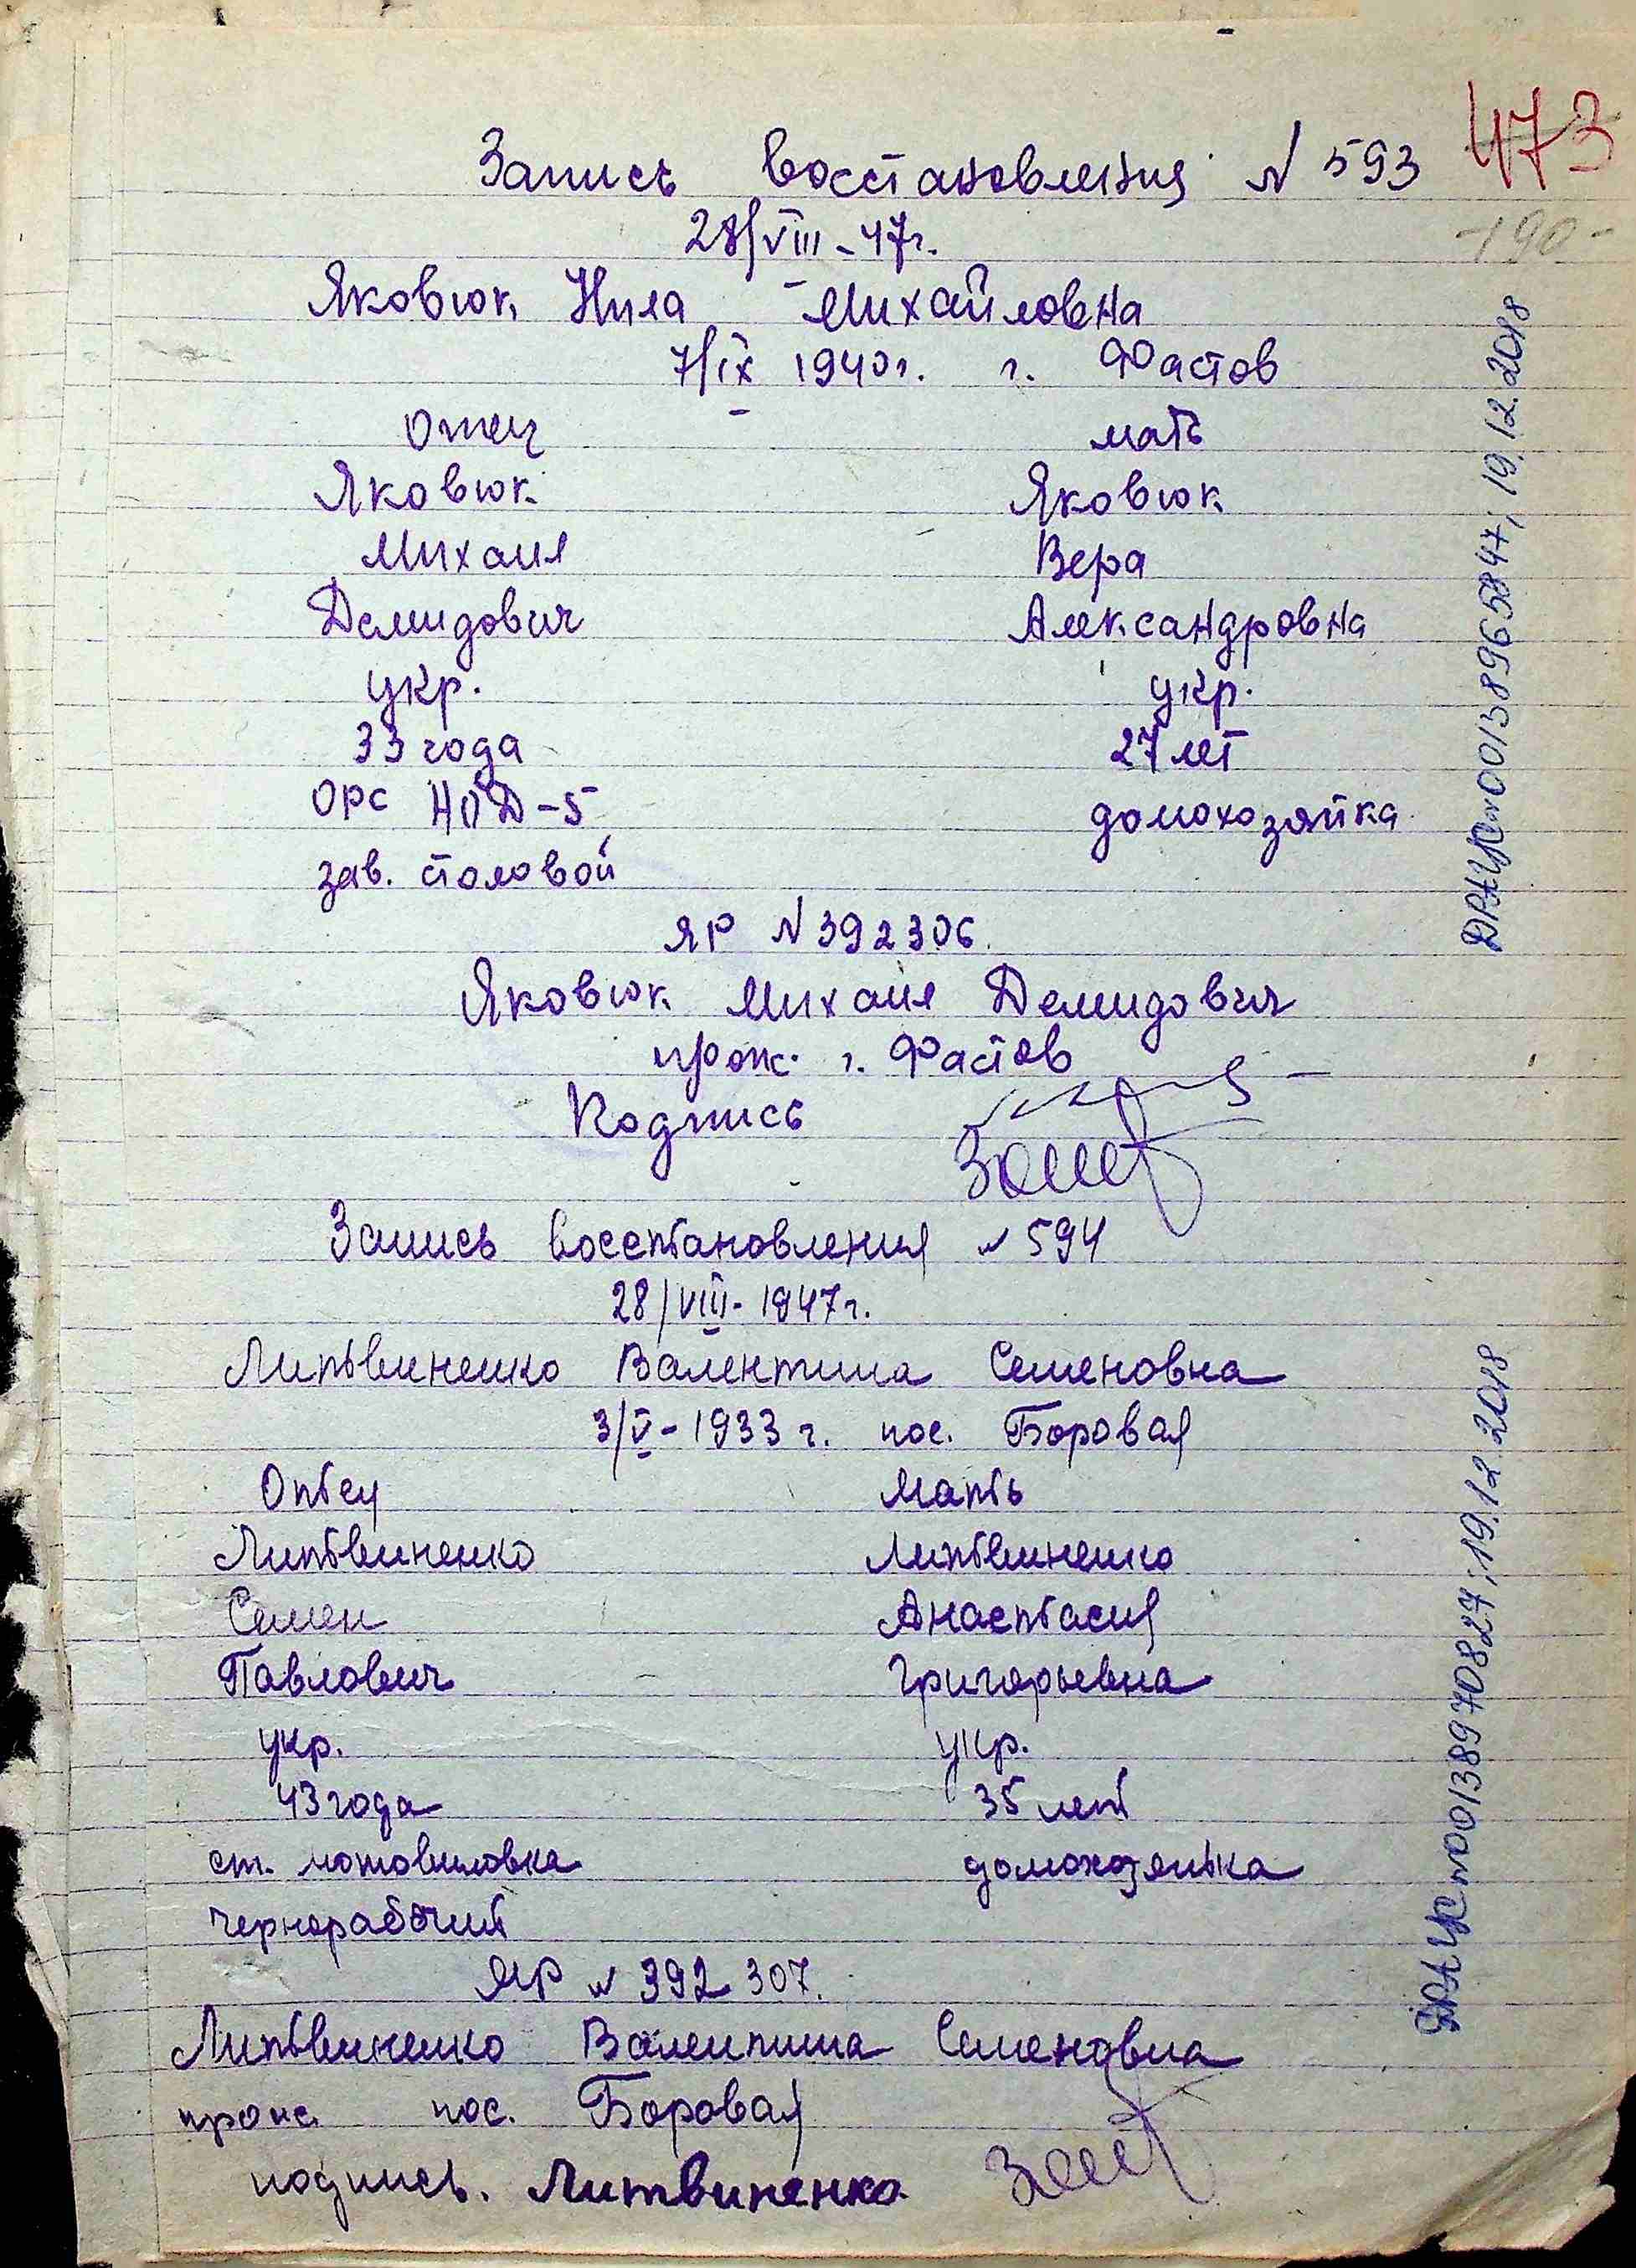 473
Запись восстановления N 593
-190-
28/VIII-47г.
Яковюк Нила Михайловна
7/IX 1940г. г. Фастов
Отец мать
Яковюк Яковюк
Михаил Вера
Демидович Александровна
укр. укр.
33 года 27 лет
ОРС НОД-5 домохозяйка
зав. столовой
ЯР N 392306.
Яковюк Михаил Демидович
прож. г. Фастов
Подпись
Запись восстановления N 594
28/VIII-1947г.
Литвиненко Валентина Семеновна
3/V-1933 г. пос. Боровая
Отец Мать
Литвиненко Литвиненко
Семен Анастасия
Павлович Григорьевна
укр. укр.
43 года 35 лет
ст. мотовиловка домохозяйка
чернорабочий
ЯР N 392307.
Литвиненко Валентина Семеновна
прож пос. Боровая
подпись. Литвиненко
ДРАЦС 00138965847; 19.12.2018
ДРАЦС 00138970827; 19.12.2018